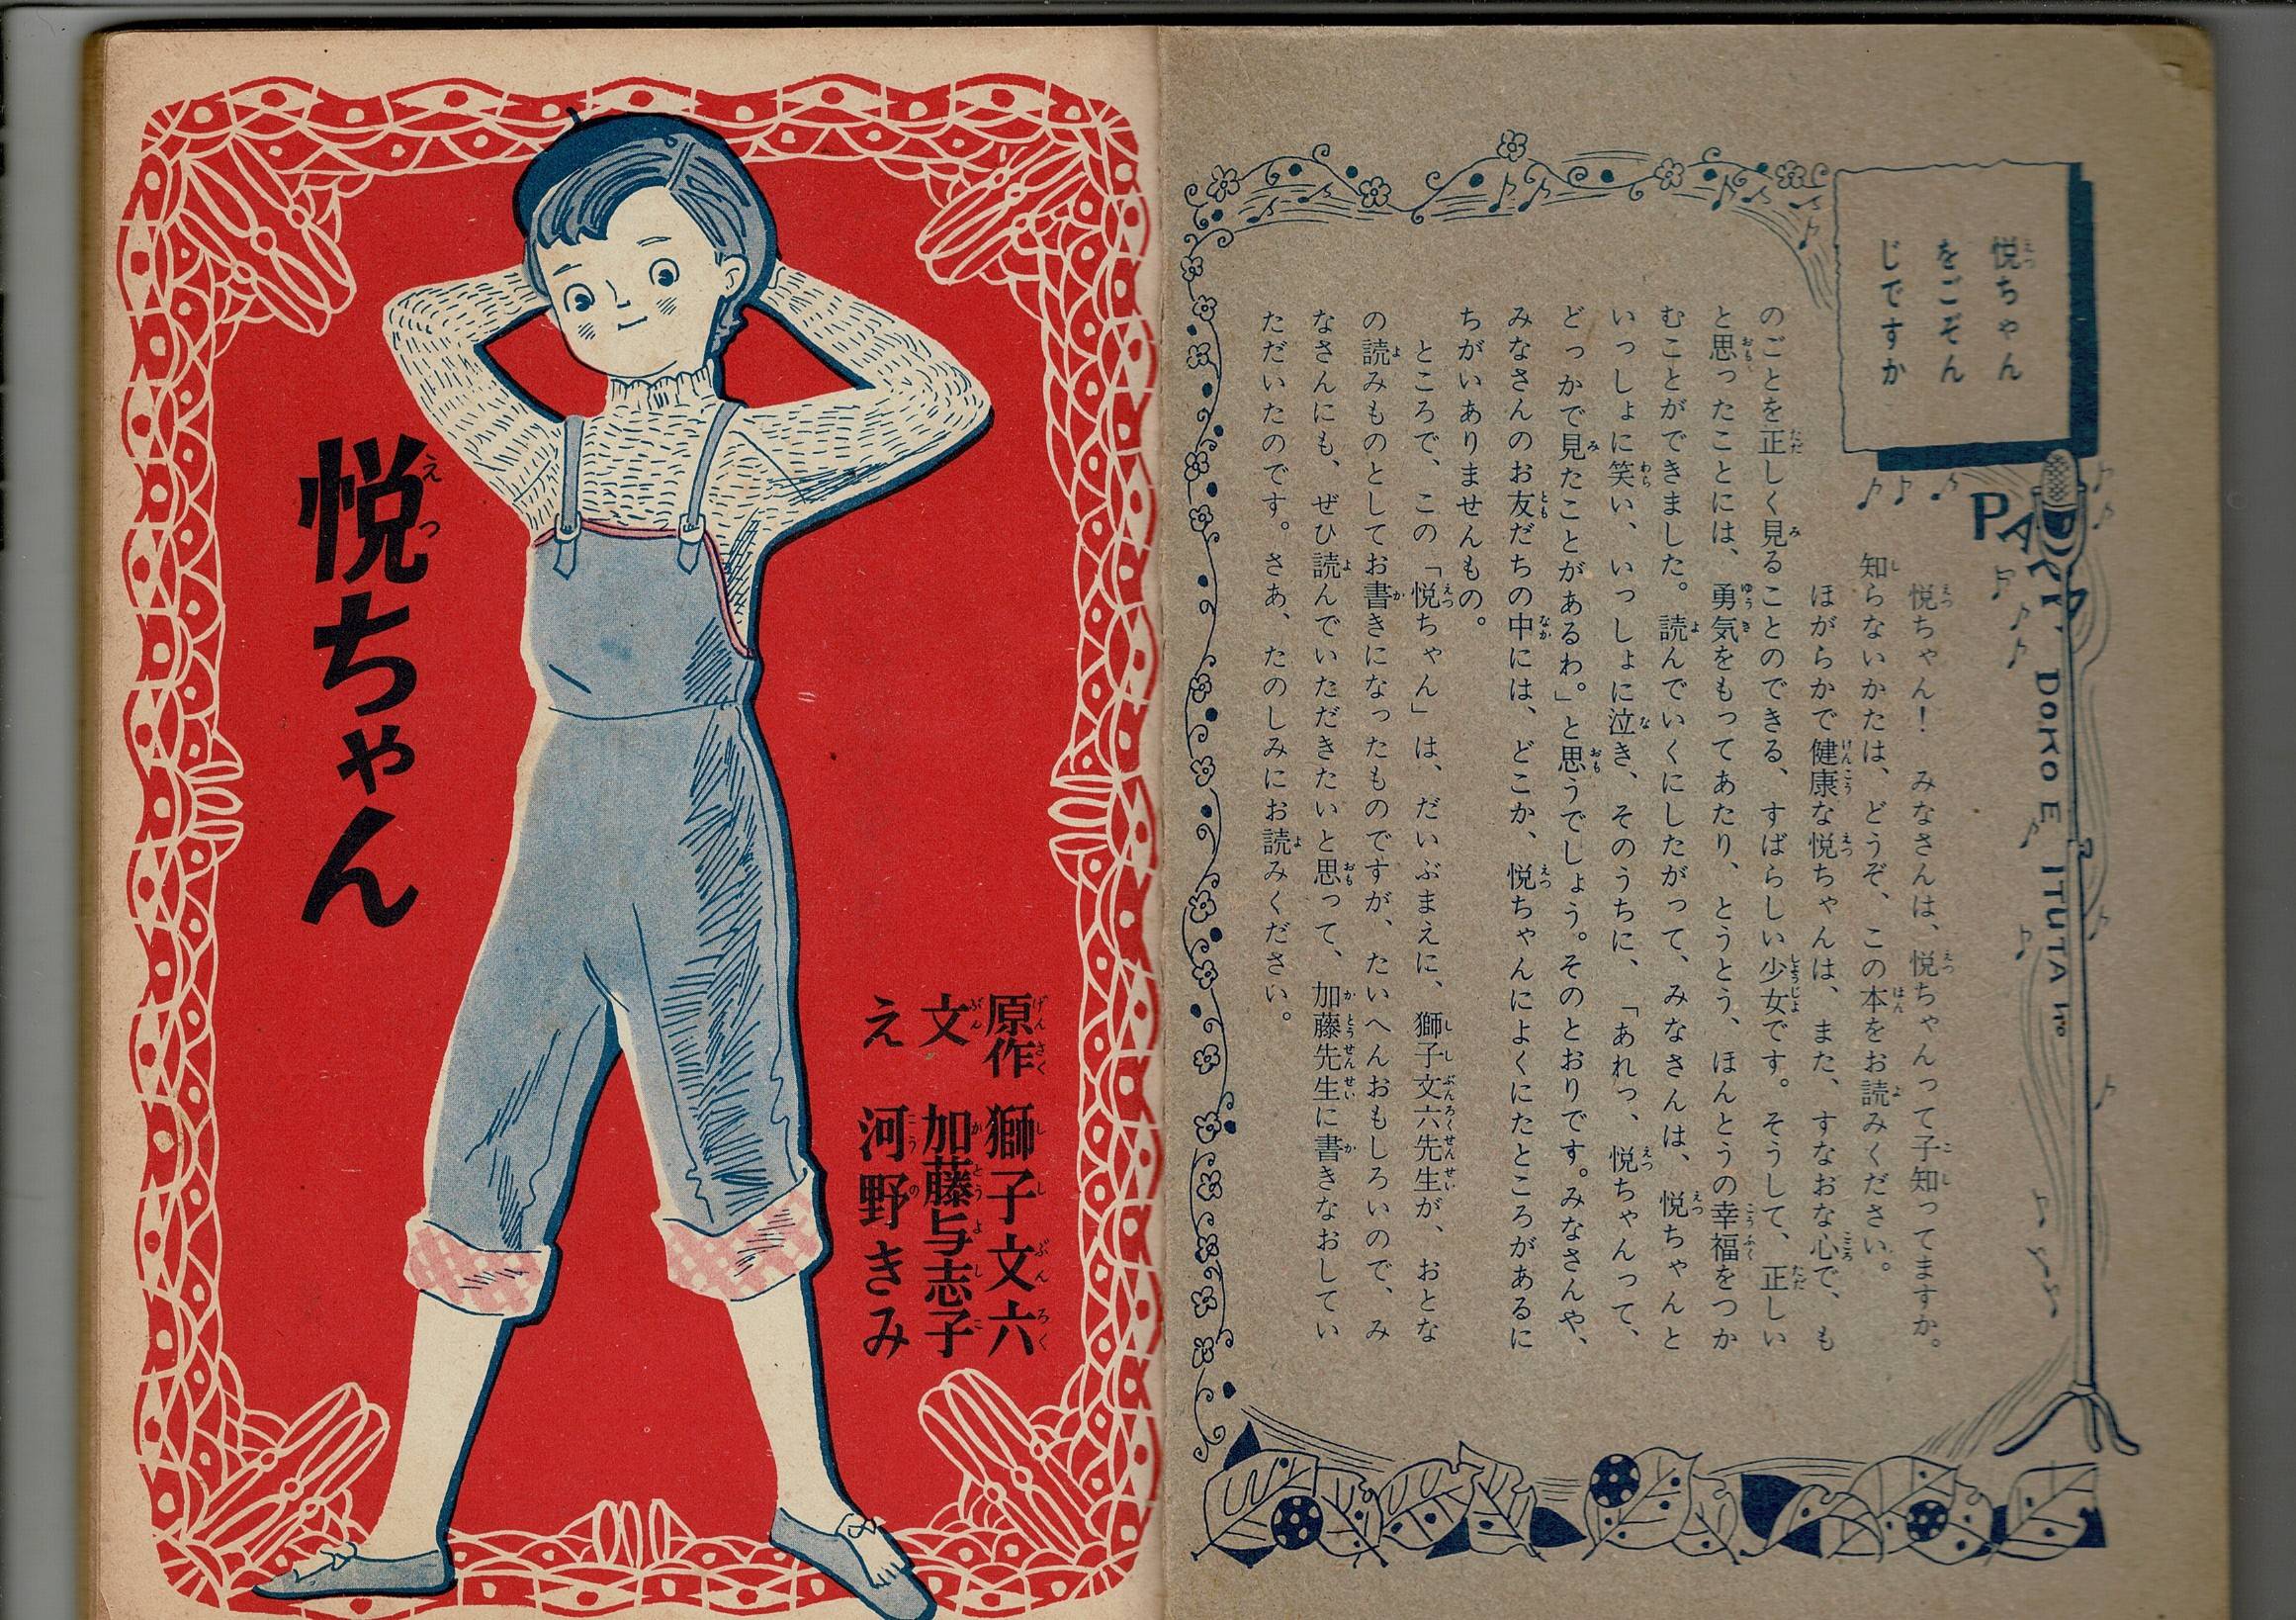 悦ちゃん
をごぞん
じですか
PAPA DOKO E ITUTA
悦ちゃん！　みなさんは、悦ちゃんって子知ってますか。
知らないかたは、どうぞ、この本をお読みください。
ほがらかで健康な悦ちゃんは、また、すなおな心で、も
のごとを正しく見ることのできる、すばらしい少女です。そうして、正しい
と思ったことには、勇気をもってあたり、とうとう、ほんとうの幸福をつか
むことができました。読んでいくにしたがって、みなさんは、悦ちゃんと
いっしょに笑い、いっしょに泣き、そのうちに、「あれっ、悦ちゃんって、
どっかで見たことがあるわ。」と思うでしょう。そのとおりです。みなさんや、
みなさんのお友だちの中には、どこか、悦ちゃんによくにたところがあるに
ちがいありませんもの。
ところで、この「悦ちゃん」は、だいぶまえに、獅子文六先生が、おとな
の読みものとしてお書きになったものですが、たいへんおもしろいので、み
なさんにも、ぜひ読んでいただきたいと思って、加藤先生に書きなおしてい
ただいたのです。さあ、たのしみにお読みください。
原作　獅子文六
文　加藤与志子
え　河野きみ
悦ちゃん